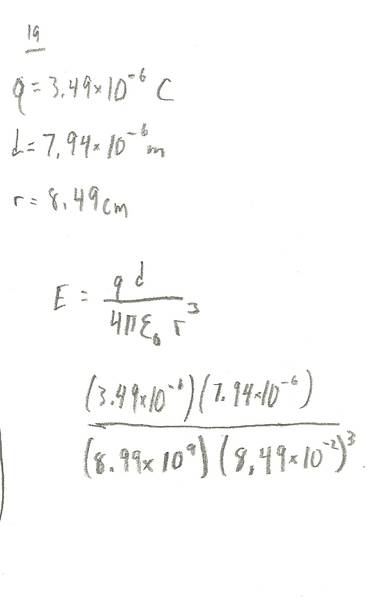 19
q = 3.49×10⁻⁶ C
d = 7.94×10⁻⁶ m
r = 8.49 cm
E = qd / 4πε₀ r³
(3.49×10⁻⁶)(7.94×10⁻⁶)
(8.99×10⁹)(8.49×10⁻²)³